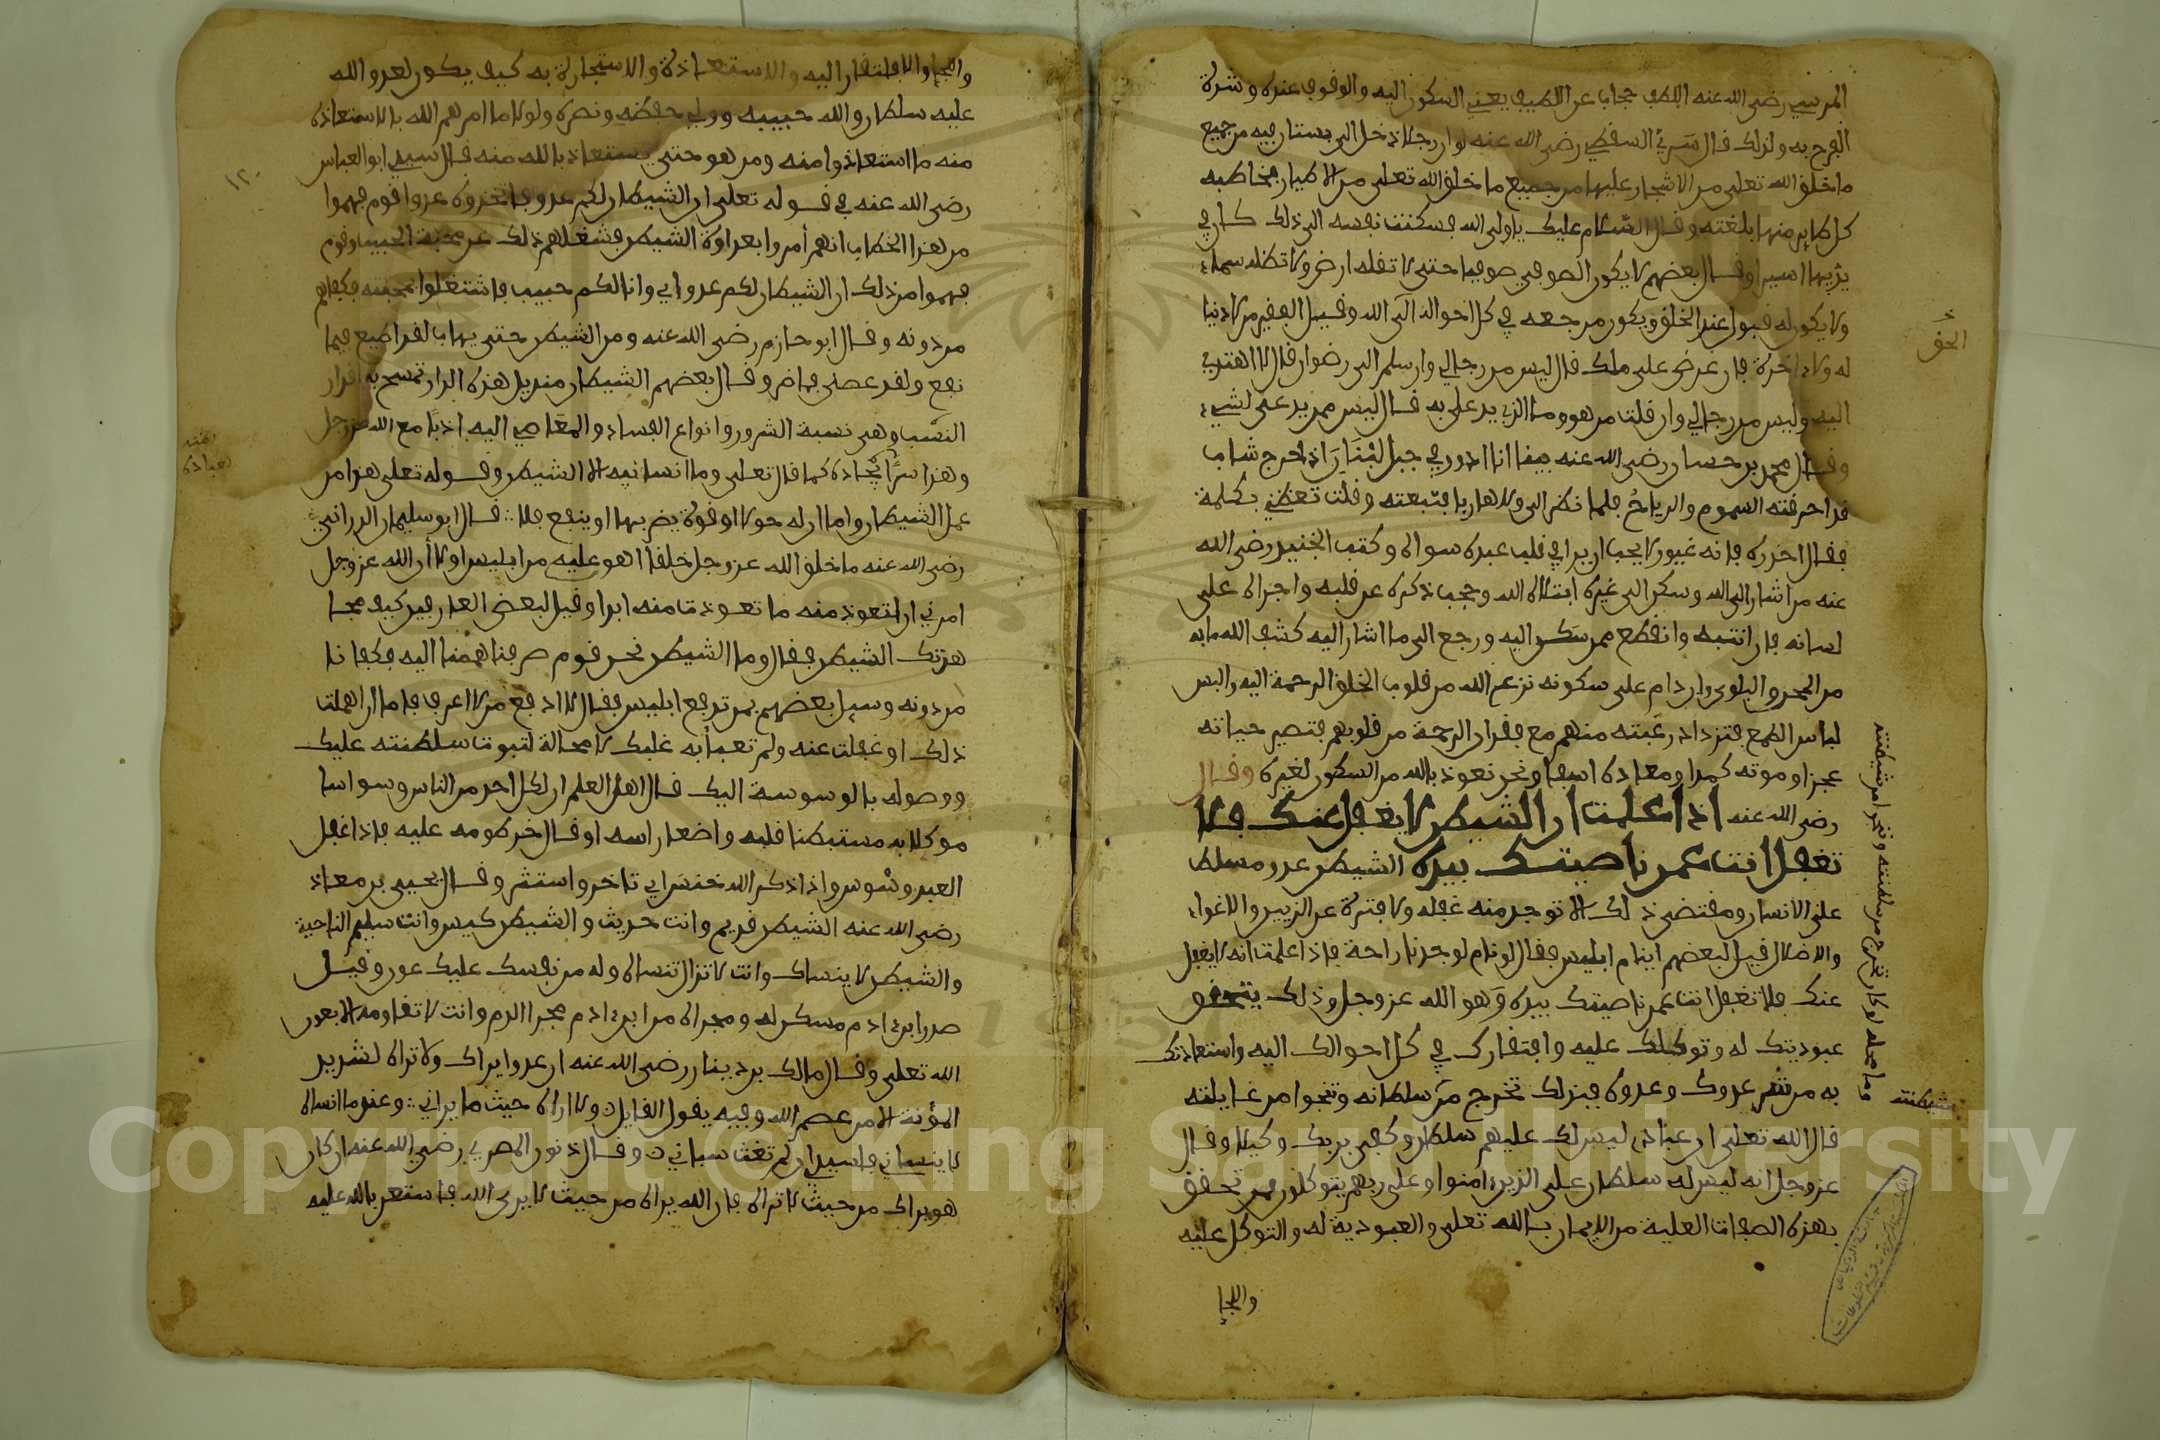 المرسي رضي الله عنه اللطف حجاب عن اللطيف يعني السكون اليه والوقوف عنده وشدة
الفرح به ولذلك قال سري السقطي رضي الله عنه لو ان رجلا دخل الى بستان فيه من جميع
ما خلق الله تعلى من الاشجار عليها من جميع ما خلق الله تعلى من الاطيار فخاطبه
كل طاير منها بلغته وقال السلام عليك يا ولي الله فسكنت نفسه الى ذلك كان في
يديها اسيرا وقال بعضهم لا يكون الصوفي صوفيا حتى لا تقله ارض ولا تظله سماء
ولا يكون له قبول عند الخلق ويكون مرجعه في كل احواله الى الله وقيل الفقير من لا دنيا
له ولا اخرة فان عرض على ملك قال ليس من رجالي وان سلم الى رضوان قال لا اهتدي
اليه وليس من رجالي وان قلت من هو وما الذي يدعى به قال ليس من يدعى لشيء
وقال محمد بن حسان رضي الله عنه بينا انا ادور في جبل لبنان اذ خرج شاب
قد احرقته السموم والرياح فلما نظر الي ولا هاربا فتبعته وقلت تعظني بكلمة
فقال احذره فانه غيور لا يحب ان يرى في قلب عبده سواه وكتب الجنيد رضي الله
عنه من اشار الى الله وسكن الى غيره ابتلاه الله وحجب ذكره عن قلبه واجراه على
لسانه فان انتبه وانقطع ممن سكن اليه ورجع الى ما اشار اليه كشف الله ما به
من المحن والبلوى وان دام على سكونه نزع الله من قلوب الخلق الرحمة اليه والبس
لباس الطمع فتزداد رغبته منهم مع فقدان الرحمة من قلوبهم فتصير حياته
عجزا وموته كمدا ومعاده اسفا ونحن نعوذ بالله من السكون لغيره وقال
رضي الله عنه اذا علمت ان الشيطن لا يغفل عنك فلا
تغفل انت عمن ناصيتك بيده الشيطن عدو مسلط
على الانسان ومقتضى ذلك الا توجد منه غفلة ولا فترة عن التزيين والاغواء
والاضلال قيل لبعضهم اينام ابليس فقال لو نام لوجدنا راحة فاذا علمت انه لا يغفل
عنك فلا تغفل انت عمن ناصيتك بيده وهو الله عز وجل وذلك بتحقق
عبوديتك له وتوكلك عليه وافتقارك في كل احوالك اليه واستعاذتك
به من شر عدوك وعدوه فبذلك تخرج من سلطانه وتنجوا من غايلته
قال الله تعلى ان عبادي ليس لك عليهم سلطان وكفى بربك وكيلا وقال
عز وجل انه ليس له سلطان على الذين امنوا وعلى ربهم يتوكلون فمن تحقق
بهذه الصفات العلية من الايمان بالله تعلى والعبودية له والتوكل عليه
واللجإ
الحق
شيطنته
واللجإ والافتقار اليه والاستعاذة والاستجارة به كيف يكون لعدو الله
عليه سلطان والله حبيبه وولي حفظه ونصره ولولا ما امرهم الله بالاستعاذة
منه ما استعاذوا منه ومن هو حتى يستعاذ بالله منه قال سيدي ابو العباس
رضي الله عنه في قوله تعلى ان الشيطان لكم عدو فاتخذوه عدوا قوم فهموا
من هذا الخطاب انهم أمروا بعداوة الشيطن فشغلهم ذلك عن محبة الحبيب وقوم
فهموا من ذلك ان الشيطان لكم عدو اي وانا لكم حبيب فاشتغلوا بمحبته فكفاهم
من دونه وقال ابو حازم رضي الله عنه ومن الشيطن حتى يهاب لقد اطيع فما
نفع ولقد عصي فما ضر وقال بعضهم الشيطان منديل هذه الدار تمسح به اقذار
النسب وهي نسبة الشرور وانواع الفساد والمعاصي اليه ادبا مع الله عز وجل
وهذا سر ايجاده كما قال تعلى وما انسانيه الا الشيطن وقوله تعلى هذا من
عمل الشيطان واما ان له حولا او قوة يضر بها او ينفع فلا قال ابو سليمان الداراني
رضي الله عنه ما خلق الله عز وجل خلقا اهون عليه من ابليس ولولا أن الله عز وجل
امرني ان اتعوذ منه ما تعوذت منه ابدا وقيل لبعض العارفين كيف مجا
هدتك الشيطن فقال وما الشيطن نحن قوم صرفنا هممنا اليه فكفانا
من دونه وسيل بعضهم بمن ترفع ابليس فقال لا ادفع من لا اعرف فاما ان اهملت
ذلك او غفلت عنه ولم تعبأ به غلبك لا محالة لثبوت سلطنته عليك
ووصوله بالوسوسة اليك قال اهل العلم ان لكل احد من الناس وسواسا
موكلا به مستبطنا قلبه واضعا راسه او قال خرطومه عليه فاذا غفل
العبد وسوس واذا ذكر الله خنس اي تاخر واستتر وقال يحيى بن معاذ
رضي الله عنه الشيطن قديم وانت حديث والشيطن كيس وانت سليم الناحية
والشيطن لا ينساك وانت لا تزال تنساه وله من نفسك عليك عون وقيل
صدر ابن ادم مسكن له ومجراه من ابن ادم مجرا الدم وانت لا تقاومه الا بعون
الله تعلى وقال مالك بن دينار رضي الله عنه ان عدوا يراك ولا تراه لشديد
المؤنة الا من عصم الله وفيه يقول القايل ولا اراه حيث ما يراني وعندما انساه
لا ينساني فاسيدي ان لم تغث سباني وقال ذو نون المصري رضي الله عنه ان كان
هو يراك من حيث لا تراه فان الله يراه من حيث لا يرى الله فاستعن بالله عليه
١٢٠